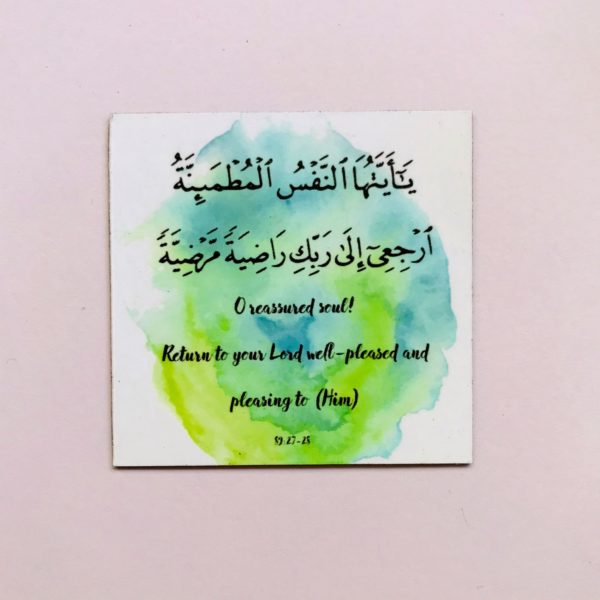 يَـٰٓأَيَّتُهَا ٱلنَّفْسُ ٱلْمُطْمَىِٕنَّةُ
ٱرْجِعِىٓ إِلَىٰ رَبِّكِ رَاضِيَةً مَّرْضِيَّةً
O reassured soul!
Return to your Lord well-pleased and
pleasing to (Him)
89:27-28